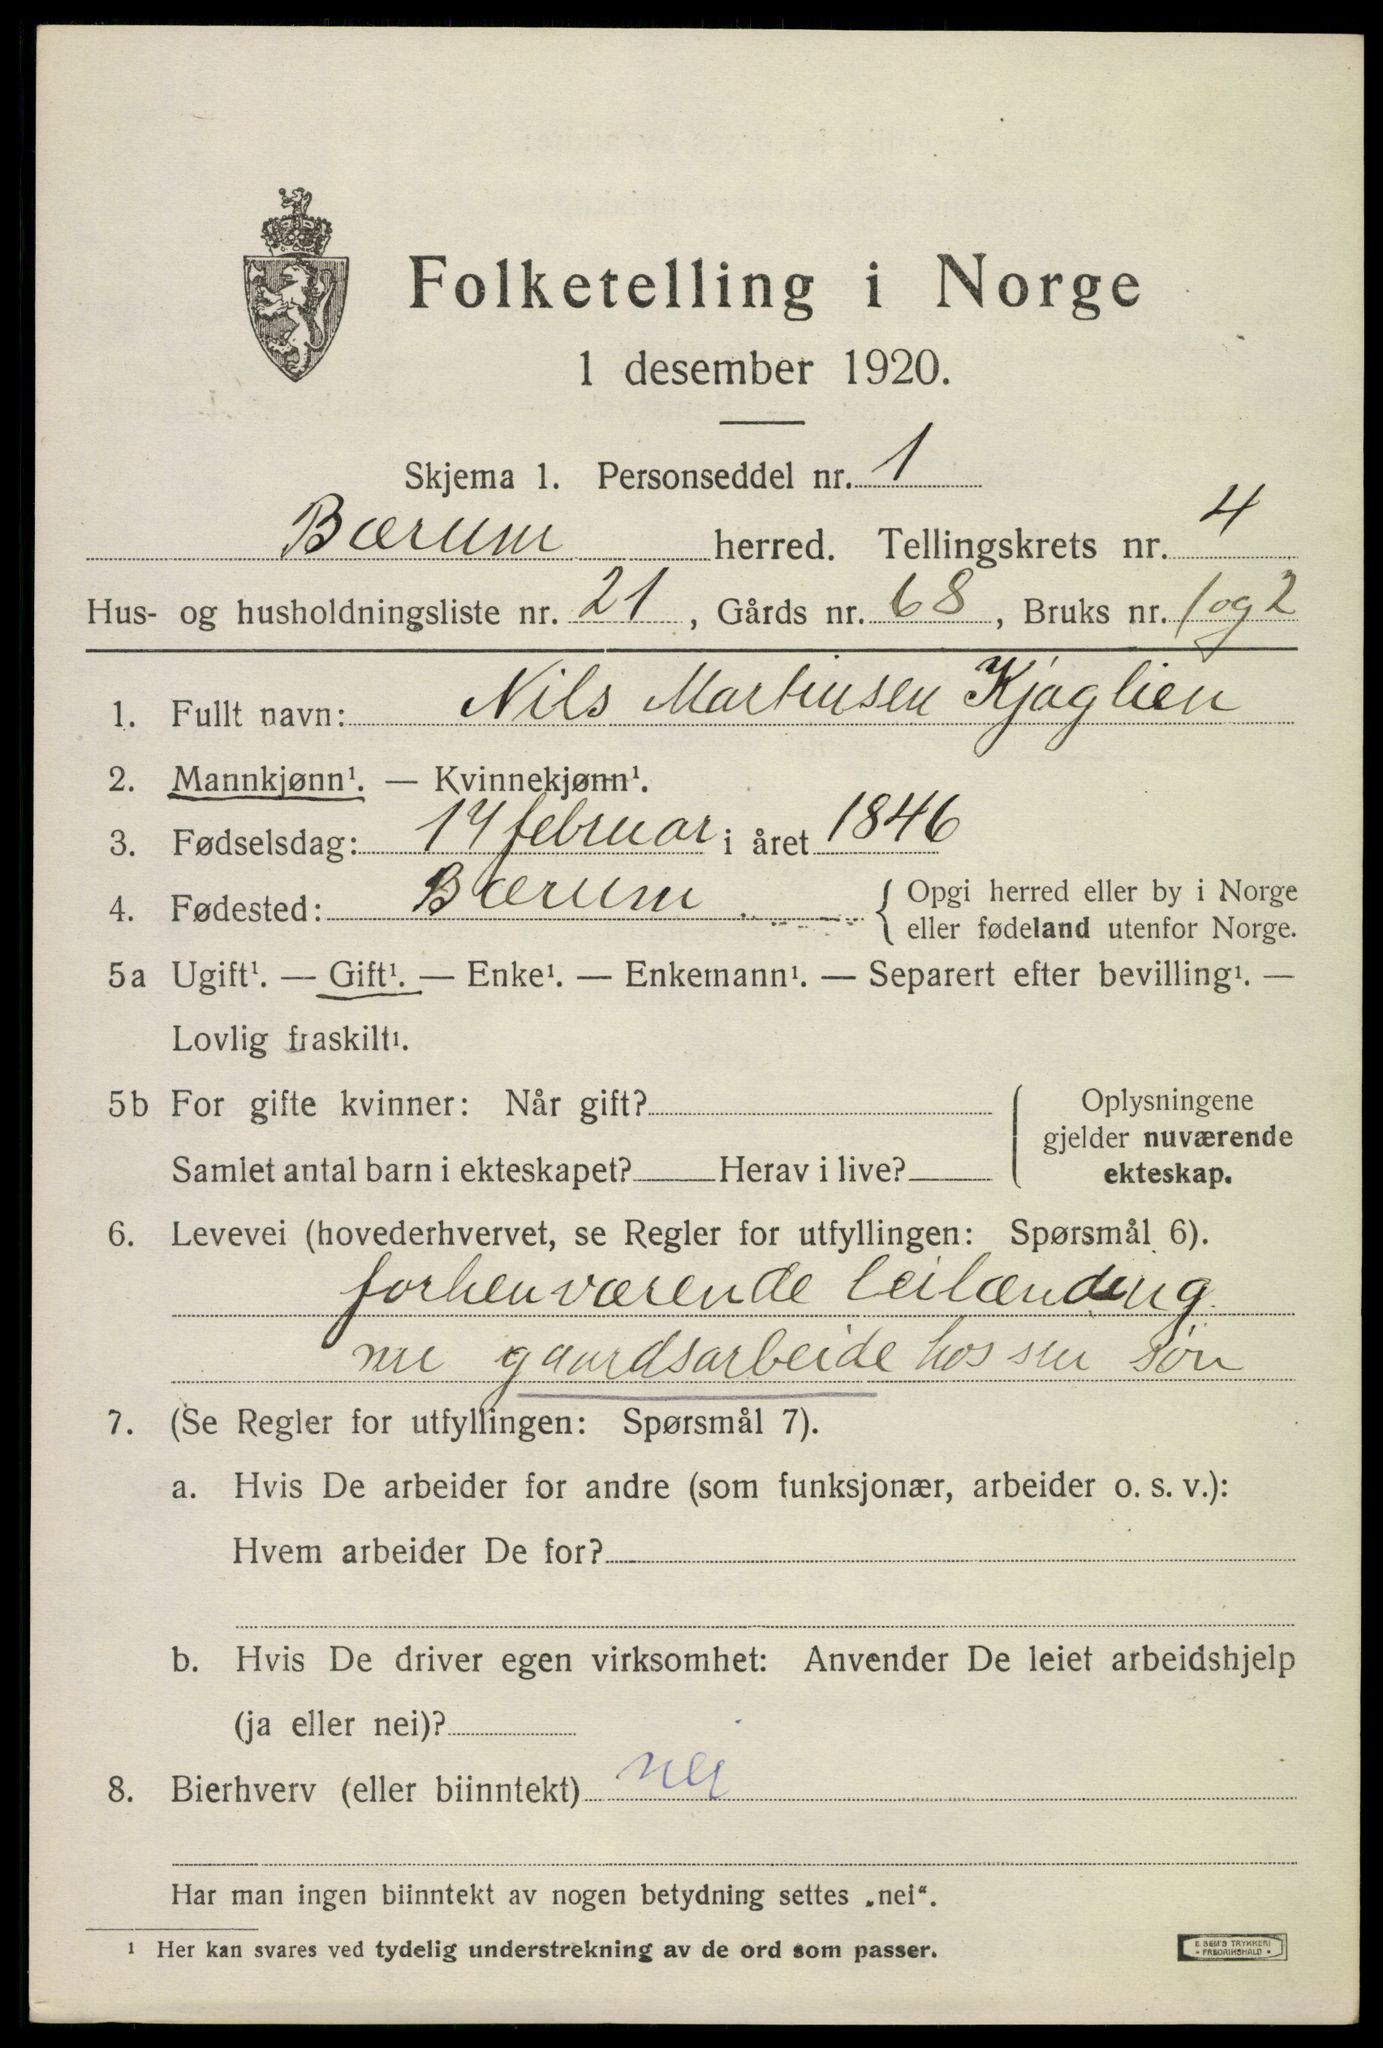 Folketelling i Norge
1 desember 1920.
Skjema 1. Personseddel nr. 1
Bærum herred. Tellingskrets nr. 4
Hus- og husholdningsliste nr. 21, Gårds nr. 68, Bruks nr. 1 og 2
1. Fullt navn: Nils Martinsen Kjaglien
2. Mannkjønn¹. — Kvinnekjønn¹.
3. Fødselsdag: 14 februar i året 1846
4. Fødested: Bærum { Opgi herred eller by i Norge
eller fødeland utenfor Norge.
5a Ugift¹. — Gift¹. — Enke¹. — Enkemann¹. — Separert efter bevilling¹. —
Lovlig fraskilt¹.
5b For gifte kvinner: Når gift? { Oplysningene
gjelder nuværende
Samlet antal barn i ekteskapet? Herav i live? ekteskap.
6. Levevei (hovederhvervet, se Regler for utfyllingen: Spørsmål 6).
forhenværende leilænding
nu gaardsarbeide hos sin søn
7. (Se Regler for utfyllingen: Spørsmål 7).
a. Hvis De arbeider for andre (som funksjonær, arbeider o. s. v.):
Hvem arbeider De for?
b. Hvis De driver egen virksomhet: Anvender De leiet arbeidshjelp
(ja eller nei)?
8. Bierhverv (eller biinntekt) nei
Har man ingen biinntekt av nogen betydning settes „nei“.
¹ Her kan svares ved tydelig understrekning av de ord som passer.
E. SEM'S TRYKKERI
• FREDRIKSHALD •